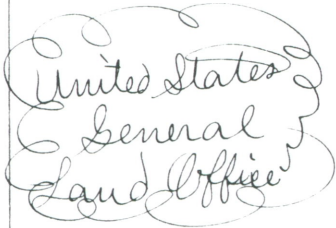 United States
General
Land Office